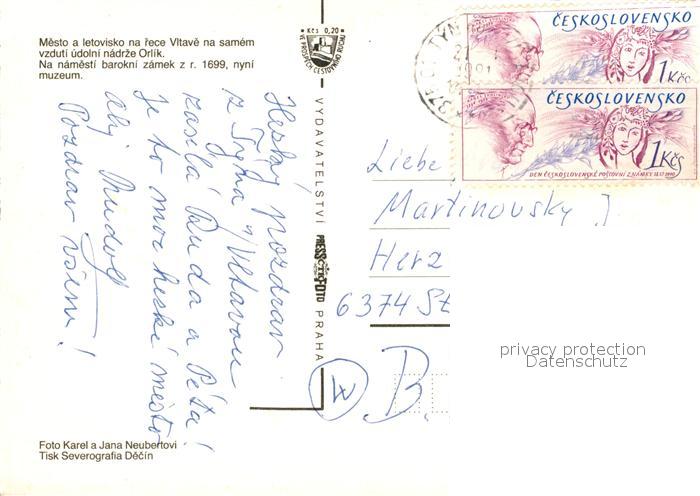 Město a letovisko na řece Vltavě na samém
vzdutí údolní nádrže Orlík.
Na náměstí barokní zámek z r. 1699, nyní
muzeum.
Kčs 0,20
VE PROSPĚCH CESTOVNÍHO RUCHU
Hezký pozdrav
z Týna n/Vltavou
zasílá Ruda a Péťa!
Je to moc hezké město
Ahoj Rudolf
Pozdrav všem!
VYDAVATELSTVÍ PRESSFOTO PRAHA
ČESKOSLOVENSKO
1 Kčs
ČESKOSLOVENSKO
1 Kčs
DEN ČESKOSLOVENSKÉ POŠTOVNÍ ZNÁMKY 18.12.1990
Liebe
Martinovsky J
Herz
6374 St
B.
privacy protection
Datenschutz
Foto Karel a Jana Neubertovi
Tisk Severografia Děčín